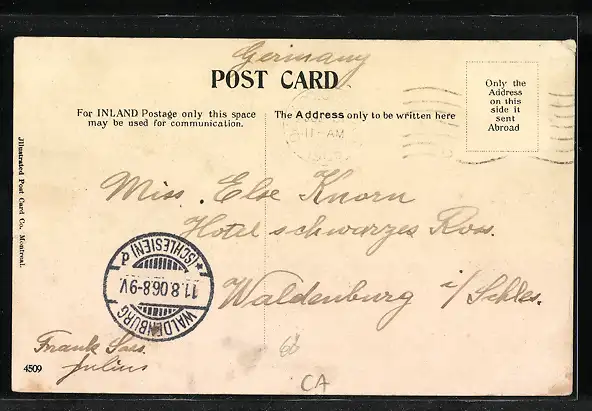 Germany
POST CARD
For INLAND Postage only this space
may be used for communication.
The Address only to be written here
Only the
Address
on this
side if
sent
Abroad
11-AM
Illustrated Post Card Co. Montreal.
Miss. Else Knorn
Hotel schwarzes Ross.
Waldenburg i/Schles.
WALDENBURG
11.8.06.8-9V.
*(SCHLESIEN) d
Frank Sass.
Julius
4509
CA